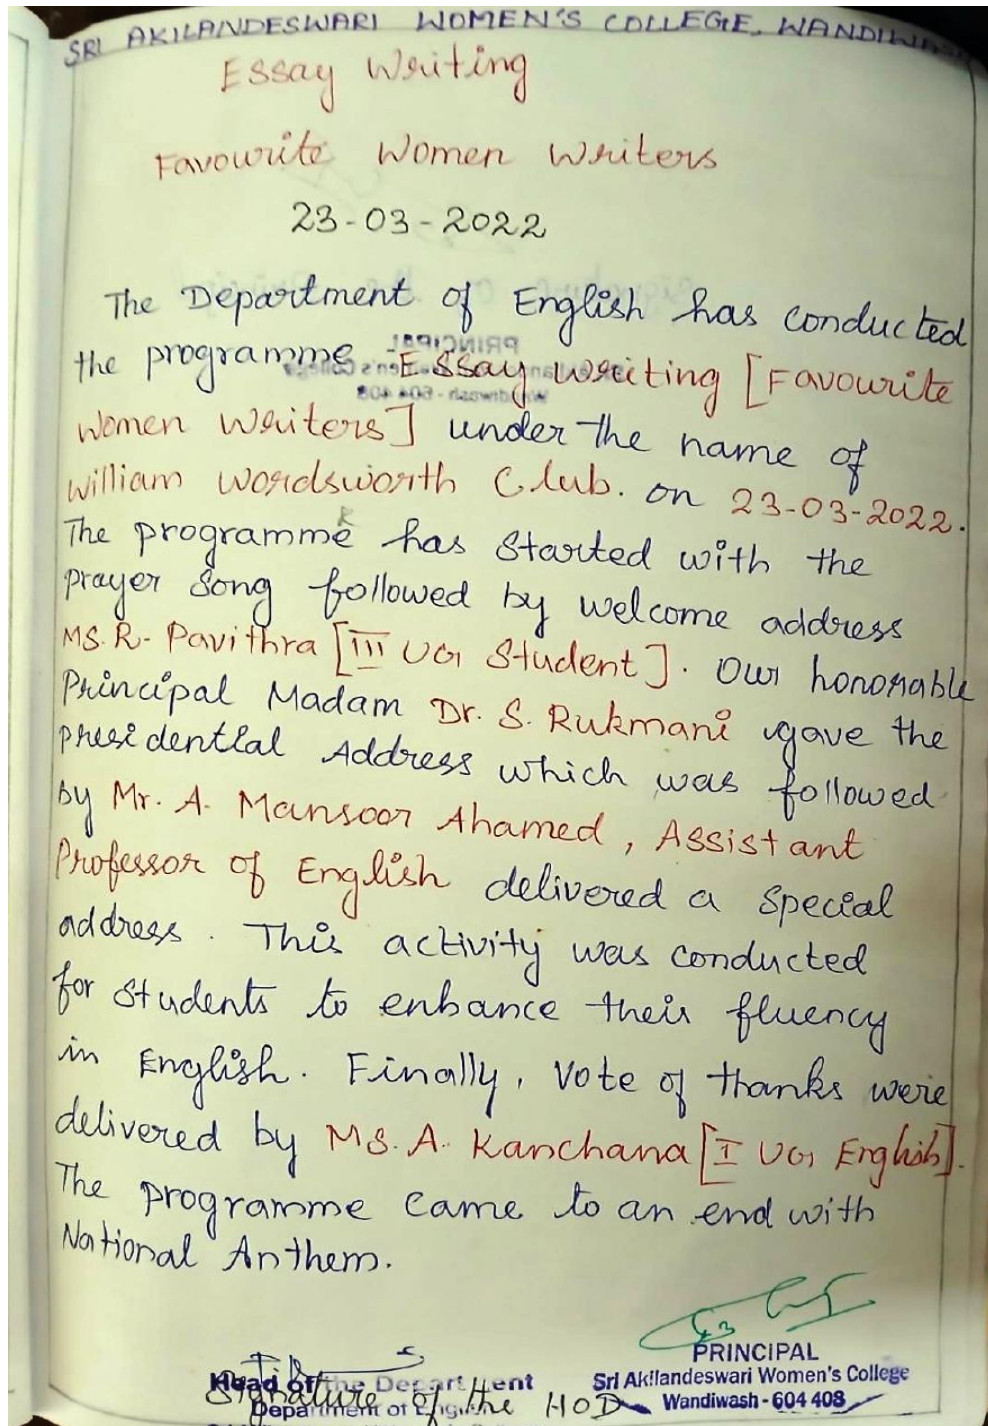 SRI AKILANDESWARI WOMEN'S COLLEGE, WANDIWASH
Essay Writing
Favourite Women Writers
23-03-2022
The Department of English has conducted
the programme Essay writing [Favourite
Women Writers] under the name of
William Wordsworth Club. on 23-03-2022.
The programme has started with the
prayer song followed by welcome address
MS. R. Pavithra [III UG Student]. Our honorable
Principal Madam Dr. S. Rukmani gave the
presidential Address which was followed
by Mr. A. Mansoor Ahamed, Assistant
Professor of English delivered a special
address. This activity was conducted
for students to enhance their fluency
in English. Finally, Vote of thanks were
delivered by MS. A. Kanchana [I UG English].
The programme came to an end with
National Anthem.
PRINCIPAL
Sri Akilandeswari Women's College
Wandiwash - 604 408
Head of the Department
Department of English
Signature of the HOD